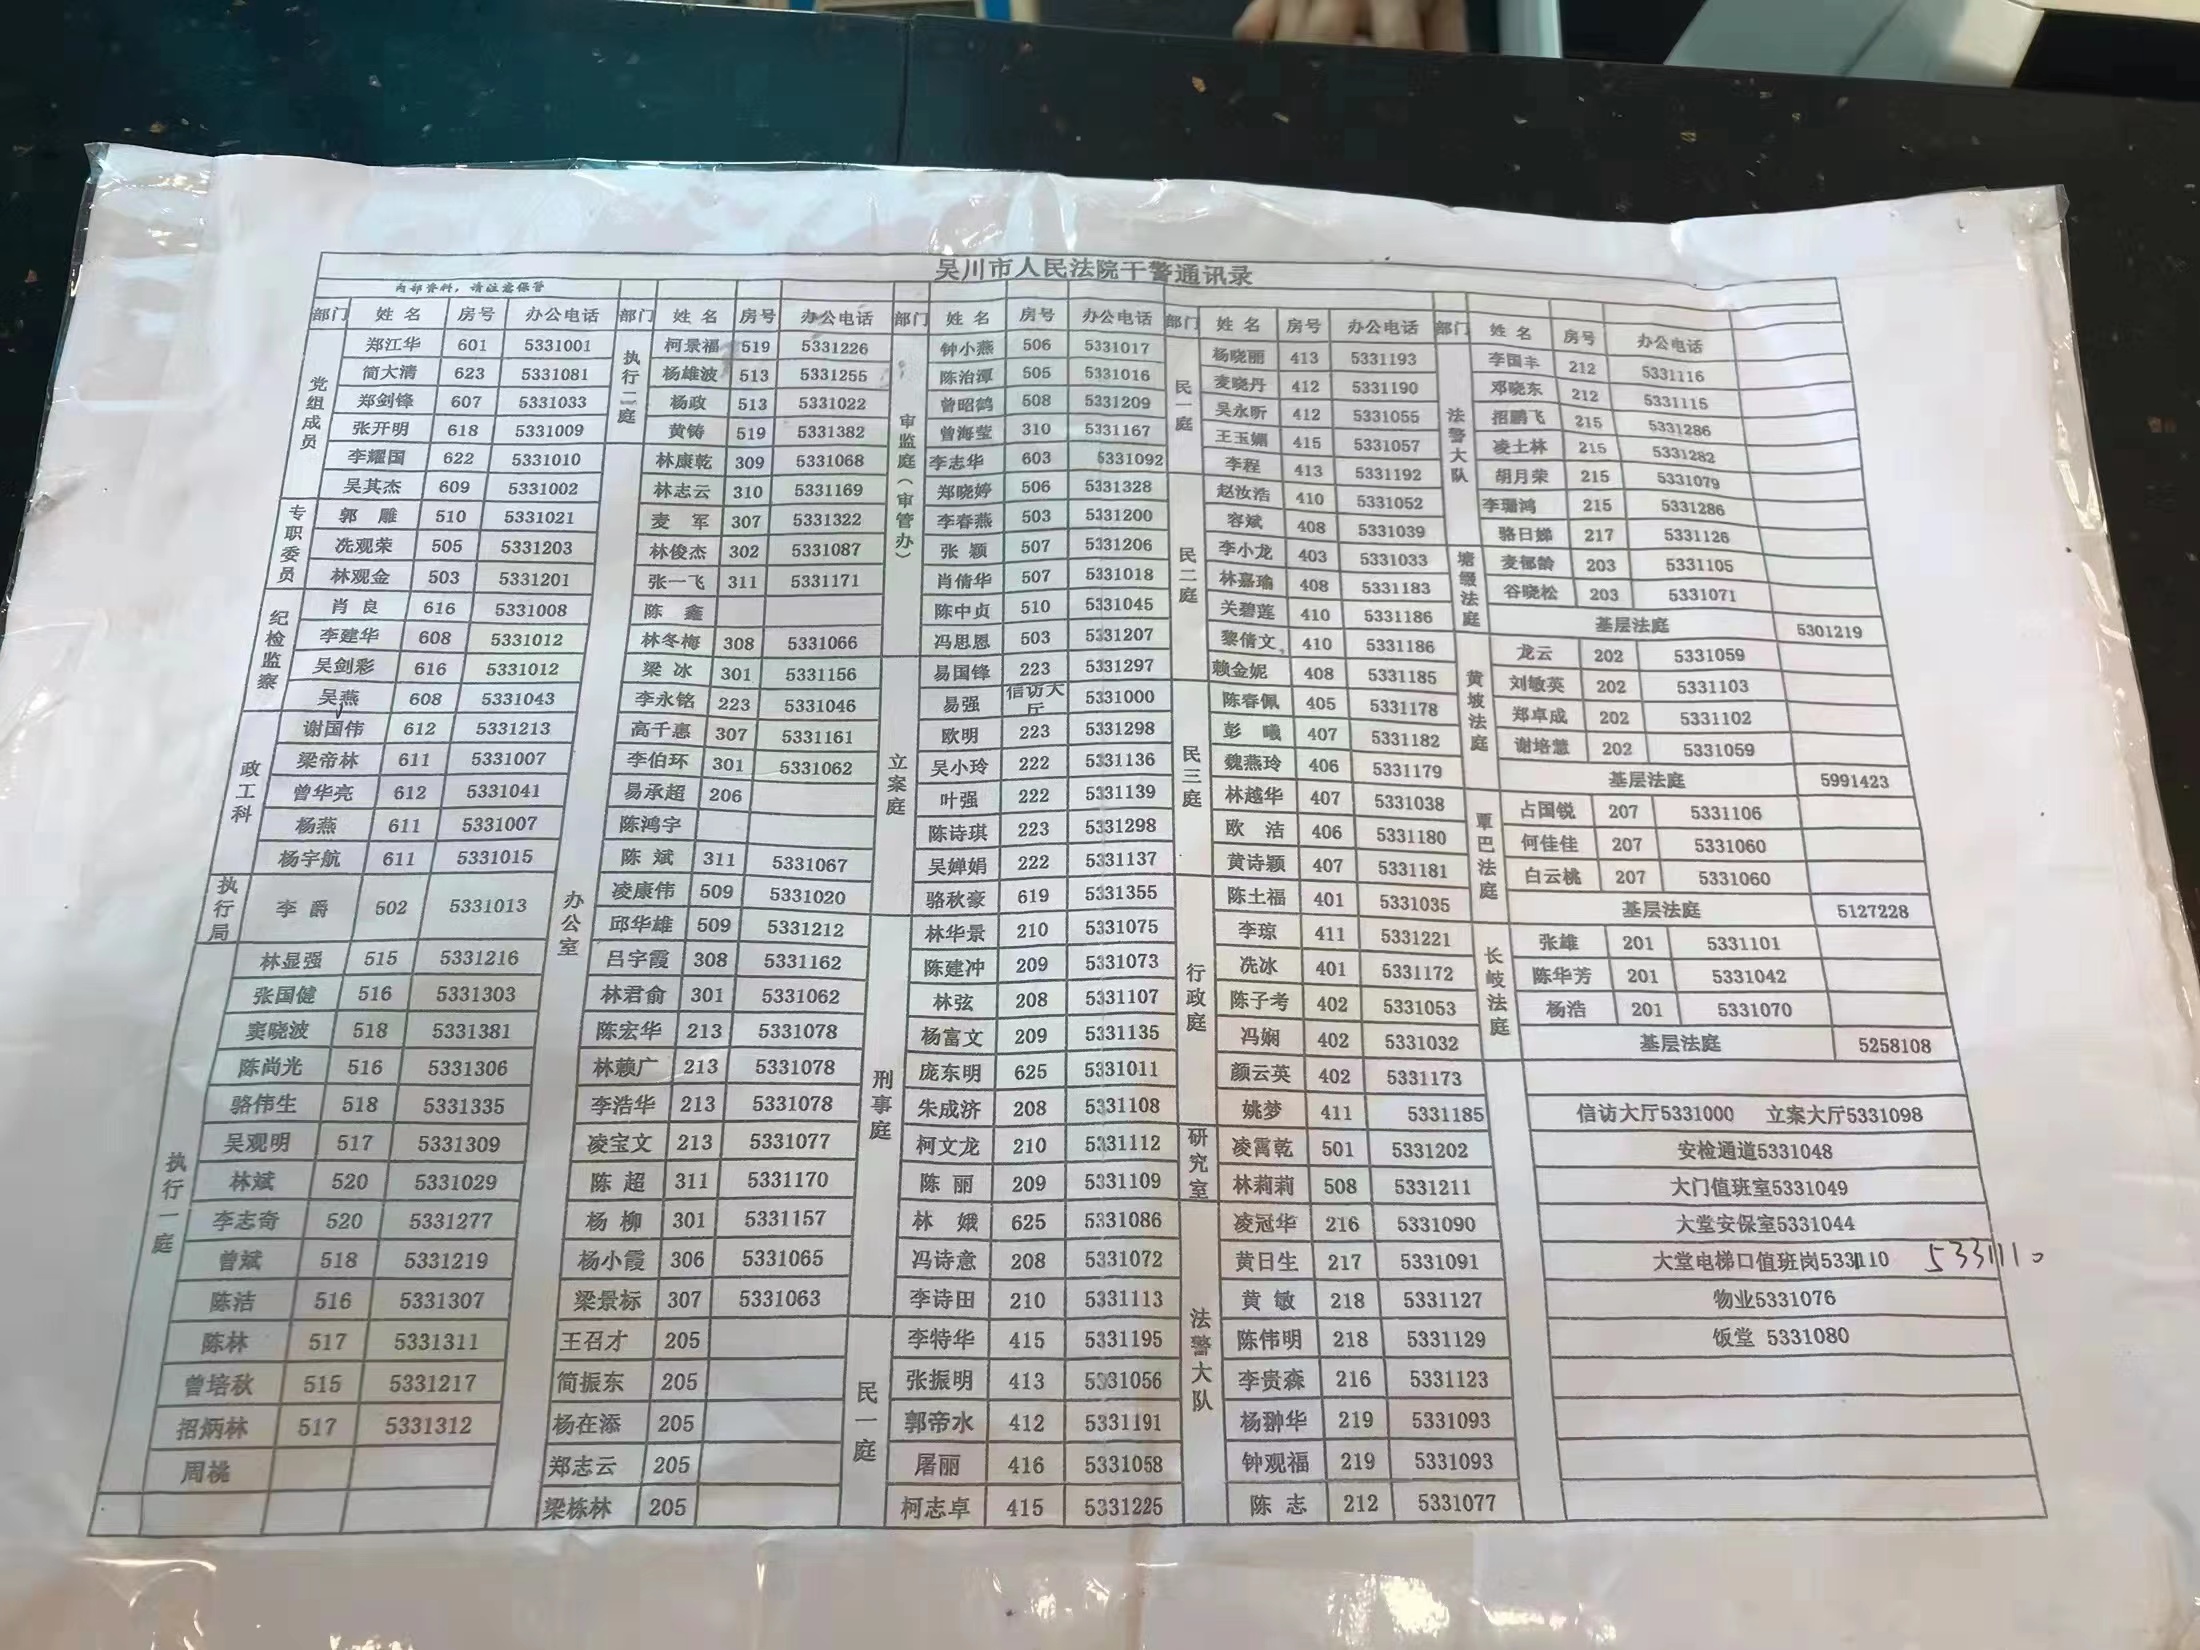 吴川市人民法院干警通讯录
内部资料，请注意保管
部门 姓 名 房号 办公电话
党组成员
郑江华 601 5331001
简大清 623 5331081
郑剑锋 607 5331033
张开明 618 5331009
李耀国 622 5331010
吴其杰 609 5331002
专职委员
郭 雕 510 5331021
冼观荣 505 5331203
林观金 503 5331201
纪检监察
肖 良 616 5331008
李建华 608 5331012
吴剑彩 616 5331012
吴燕 608 5331043
政工科
谢国伟 612 5331213
梁帝林 611 5331007
曾华亮 612 5331041
杨燕 611 5331007
杨宇航 611 5331015
执行局
李 爵 502 5331013
执行一庭
林显强 515 5331216
张国健 516 5331303
窦晓波 518 5331381
陈尚光 516 5331306
骆伟生 518 5331335
吴观明 517 5331309
林斌 520 5331029
李志奇 520 5331277
曾斌 518 5331219
陈洁 516 5331307
陈林 517 5331311
曾培秋 515 5331217
招炳林 517 5331312
周桃
部门 姓 名 房号 办公电话
执行二庭
柯景福 519 5331226
杨雄波 513 5331255
杨政 513 5331022
黄铸 519 5331382
办公室
林康乾 309 5331068
林志云 310 5331169
麦 军 307 5331322
林俊杰 302 5331087
张一飞 311 5331171
陈 鑫
林冬梅 308 5331066
梁 冰 301 5331156
李永铭 223 5331046
高千惠 307 5331161
李伯环 301 5331062
易承超 206
陈鸿宇
陈 斌 311 5331067
凌康伟 509 5331020
邱华雄 509 5331212
吕宇霞 308 5331162
林君俞 301 5331062
陈宏华 213 5331078
林赖广 213 5331078
李浩华 213 5331078
凌宝文 213 5331077
陈 超 311 5331170
杨 柳 301 5331157
杨小霞 306 5331065
梁景标 307 5331063
王召才 205
简振东 205
杨在添 205
郑志云 205
梁栋林 205
部门 姓 名 房号 办公电话
审监庭（审管办）
钟小燕 506 5331017
陈治潭 505 5331016
曾昭鹤 508 5331209
曾海莹 310 5331167
李志华 603 5331092
郑晓婷 506 5331328
李春燕 503 5331200
张 颖 507 5331206
肖倩华 507 5331018
陈中贞 510 5331045
冯思恩 503 5331207
立案庭
易国锋 223 5331297
易强 信访大厅 5331000
欧明 223 5331298
吴小玲 222 5331136
叶强 222 5331139
陈诗琪 223 5331298
吴婵娟 222 5331137
骆秋豪 619 5331355
刑事庭
林华景 210 5331075
陈建冲 209 5331073
林弦 208 5331107
杨富文 209 5331135
庞东明 625 5331011
朱成济 208 5331108
柯文龙 210 5331112
陈 丽 209 5331109
林 娥 625 5331086
冯诗意 208 5331072
李诗田 210 5331113
民一庭
李特华 415 5331195
张振明 413 5331056
郭帝水 412 5331191
屠丽 416 5331058
柯志卓 415 5331225
部门 姓 名 房号 办公电话
民一庭
杨晓丽 413 5331193
麦晓丹 412 5331190
吴永昕 412 5331055
王玉媚 415 5331057
李程 413 5331192
民二庭
赵汝浩 410 5331052
容斌 408 5331039
李小龙 403 5331033
林嘉瑜 408 5331183
关碧莲 410 5331186
黎倩文 410 5331186
赖金妮 408 5331185
民三庭
陈春佩 405 5331178
彭 曦 407 5331182
魏燕玲 406 5331179
林越华 407 5331038
欧 洁 406 5331180
黄诗颖 407 5331181
行政庭
陈土福 401 5331035
李琼 411 5331221
冼冰 401 5331172
陈子考 402 5331053
冯娴 402 5331032
颜云英 402 5331173
姚梦 411 5331185
研究室
凌霄乾 501 5331202
林莉莉 508 5331211
法警大队
凌冠华 216 5331090
黄日生 217 5331091
黄 敏 218 5331127
陈伟明 218 5331129
李贵森 216 5331123
杨翀华 219 5331093
钟观福 219 5331093
陈 志 212 5331077
部门 姓 名 房号 办公电话
法警大队
李国丰 212 5331116
邓晓东 212 5331115
招鹏飞 215 5331286
凌土林 215 5331282
胡月荣 215 5331079
李珊鸿 215 5331286
骆日娣 217 5331126
塘㙍法庭
麦郁龄 203 5331105
谷晓松 203 5331071
基层法庭 5301219
黄坡法庭
龙云 202 5331059
刘敏英 202 5331103
郑卓成 202 5331102
谢培慧 202 5331059
基层法庭 5991423
覃巴法庭
占国锐 207 5331106
何佳佳 207 5331060
白云桃 207 5331060
基层法庭 5127228
长岐法庭
张雄 201 5331101
陈华芳 201 5331042
杨浩 201 5331070
基层法庭 5258108
信访大厅5331000 立案大厅5331098
安检通道5331048
大门值班室5331049
大堂安保室5331044
大堂电梯口值班岗5331110 5331110
物业5331076
饭堂 5331080